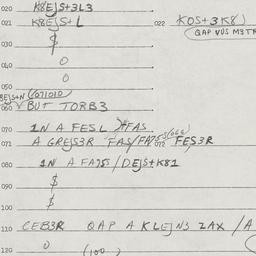 020 K8EJS+3L3
021 K8EJS+L
022 KOS+3K8J
$
(QAP VUS M3TR
030
$
0
040
0
050
8EJS+N (071010
060 BUT TORB3
070 1N A FESL FAS
071 A GREJS3R FAS/FA
072 FES3R
080 1N A FA7JS/DEJS+K81
090 $
100 $
110 CEB3R QAP A KLEJN3 ZAX /A
120 0 (100)